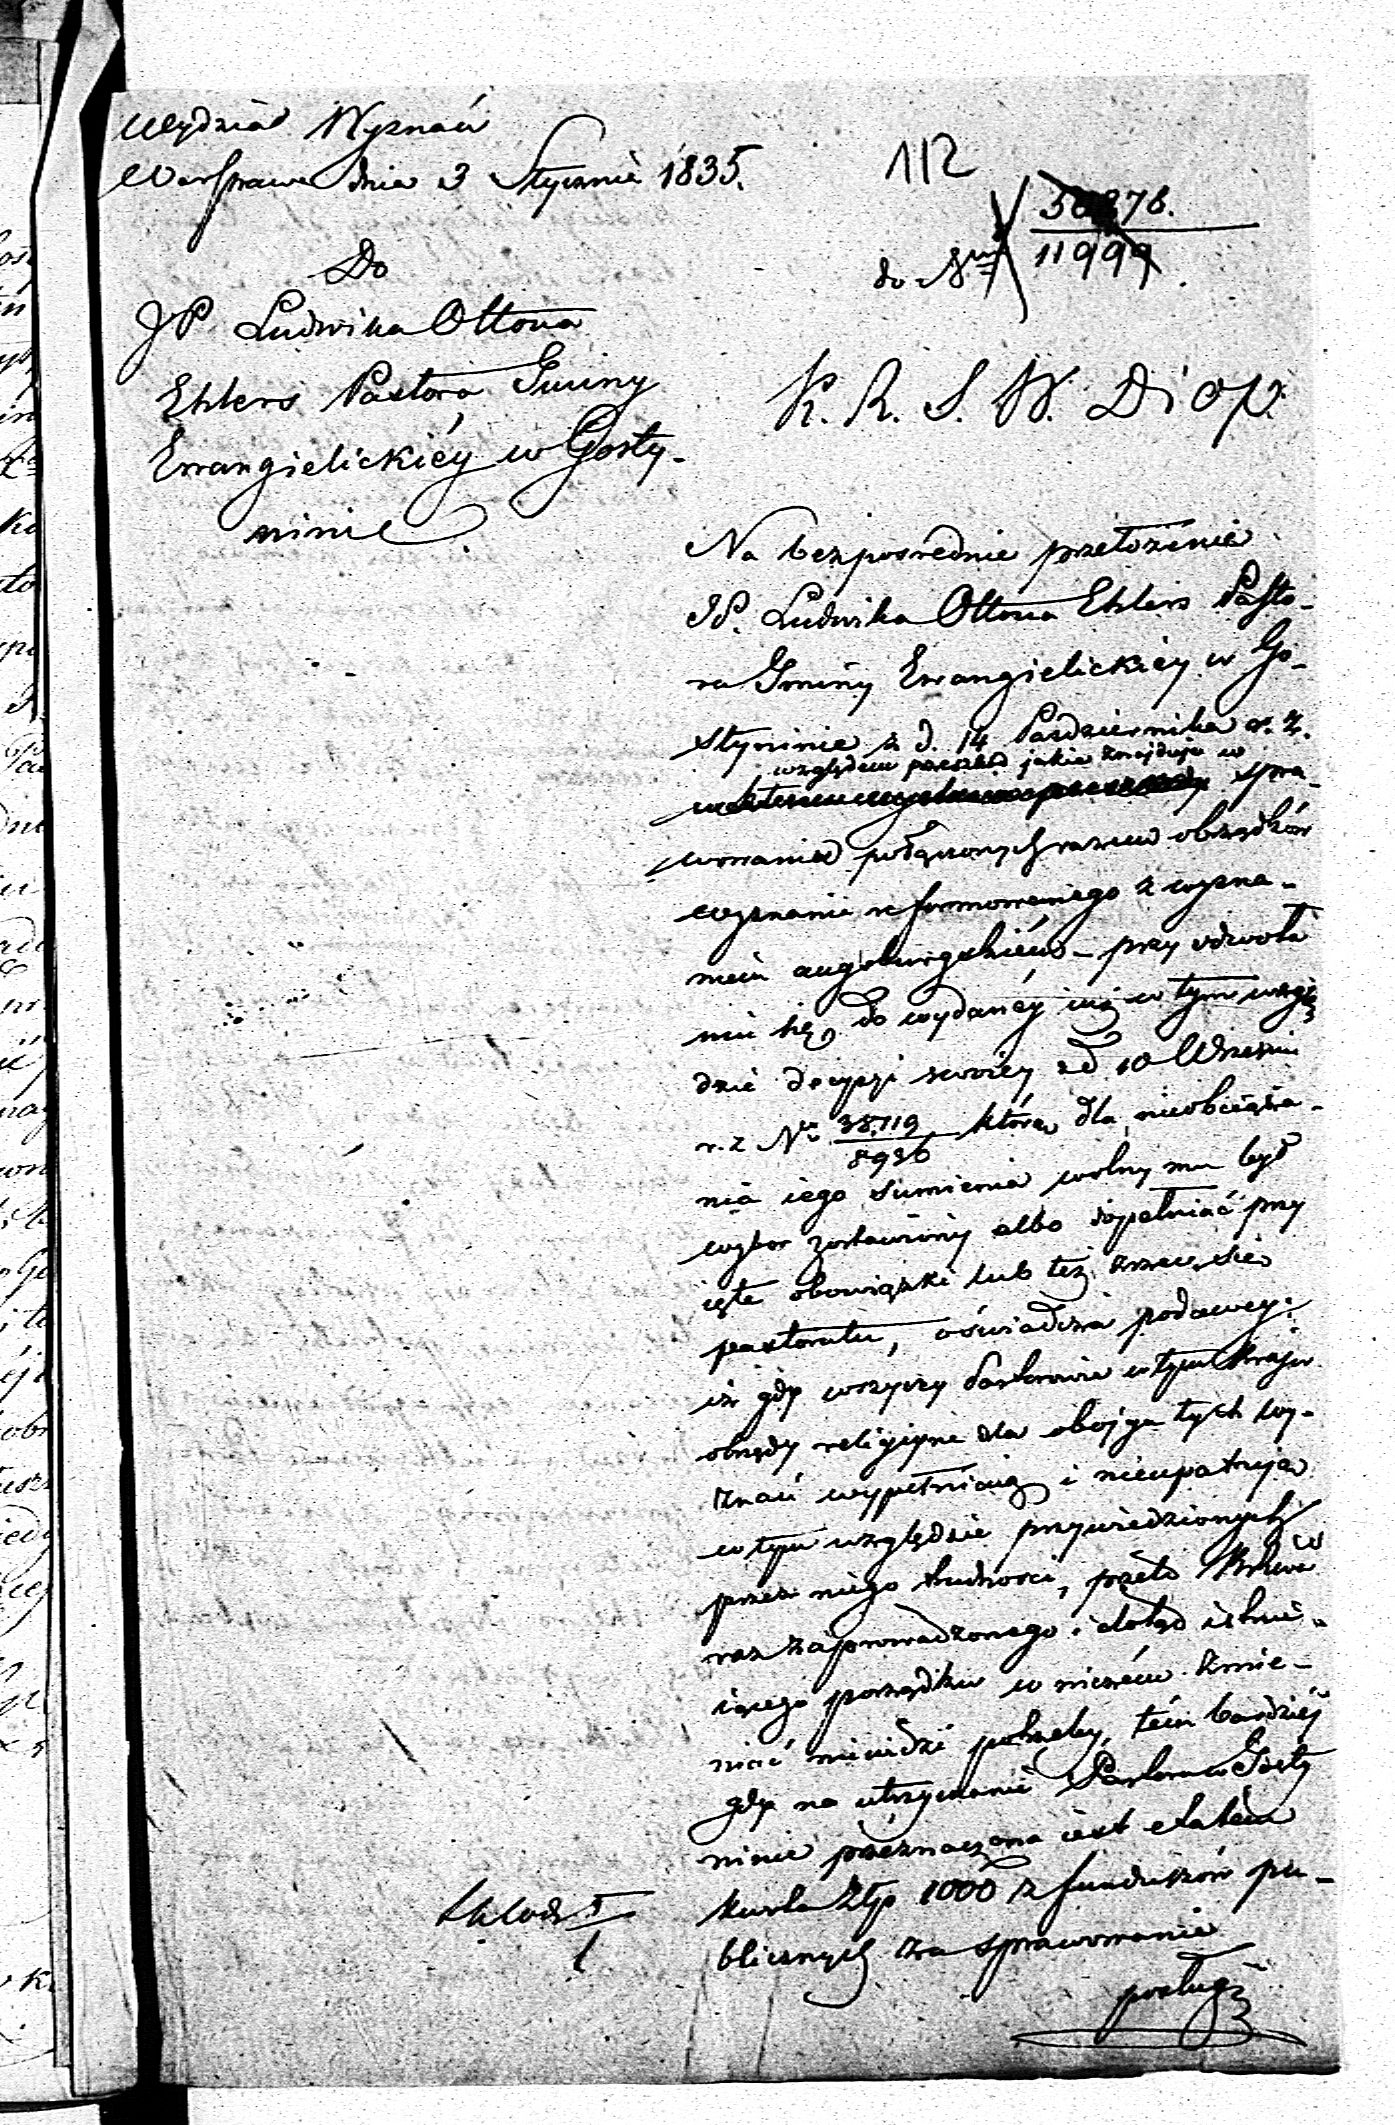 Wydział Wyznań
Warszawa dnia 3 Stycznia 1835.
112
50276.
do Nru 11999
Do
JP Ludwika Ottona
Ehlers Pastora Gminy
Ewangielickiéy w Gosty-
ninie
K. R. S. W. D i O P.
Na bezpośrednie przełożenie
JP. Ludwika Ottona Ehlers Pasto-
ra Gminy Ewangielickiéy w Go-
styninie z d. 14 Października r. z.
względem przeszkód jakie znajduje w
spra-
wowaniu połączonych razem obrządków
wyznania reformowanego z wyzna-
niem augsburgskiém – przy odwoła
niu się do wydanéy iuż w tym wzglę
dzie decyzji swoiéy z d 10 Wrześni
r. z Nro 38,119/8936 którą dla nieobciąża-
nia iego sumienia wolny mu był
wybór zostawiony albo dopełniać przy
ięte obowiązki lub też zrzec się
pastoratu, oświadcza podawcy:
iż gdy wszyscy Pastorowie w tym Kraju
obrzędy religiyne dla obojga tych wy-
znań wypełniaią i nieupatrują
w tym względzie przywiedzionych
przez niego trudności, przeto
raz zaprowadzonego i dotąd istnie-
iącego porządku w niczém zmie-
niać niewidzi potrzeby, tém bardziéj
gdy na utrzymanie Pastora w Gosty
ninie przeznaczona iest etatem
kwota Złp 1000 z funduszów pu-
blicznych za sprawowanie
posług